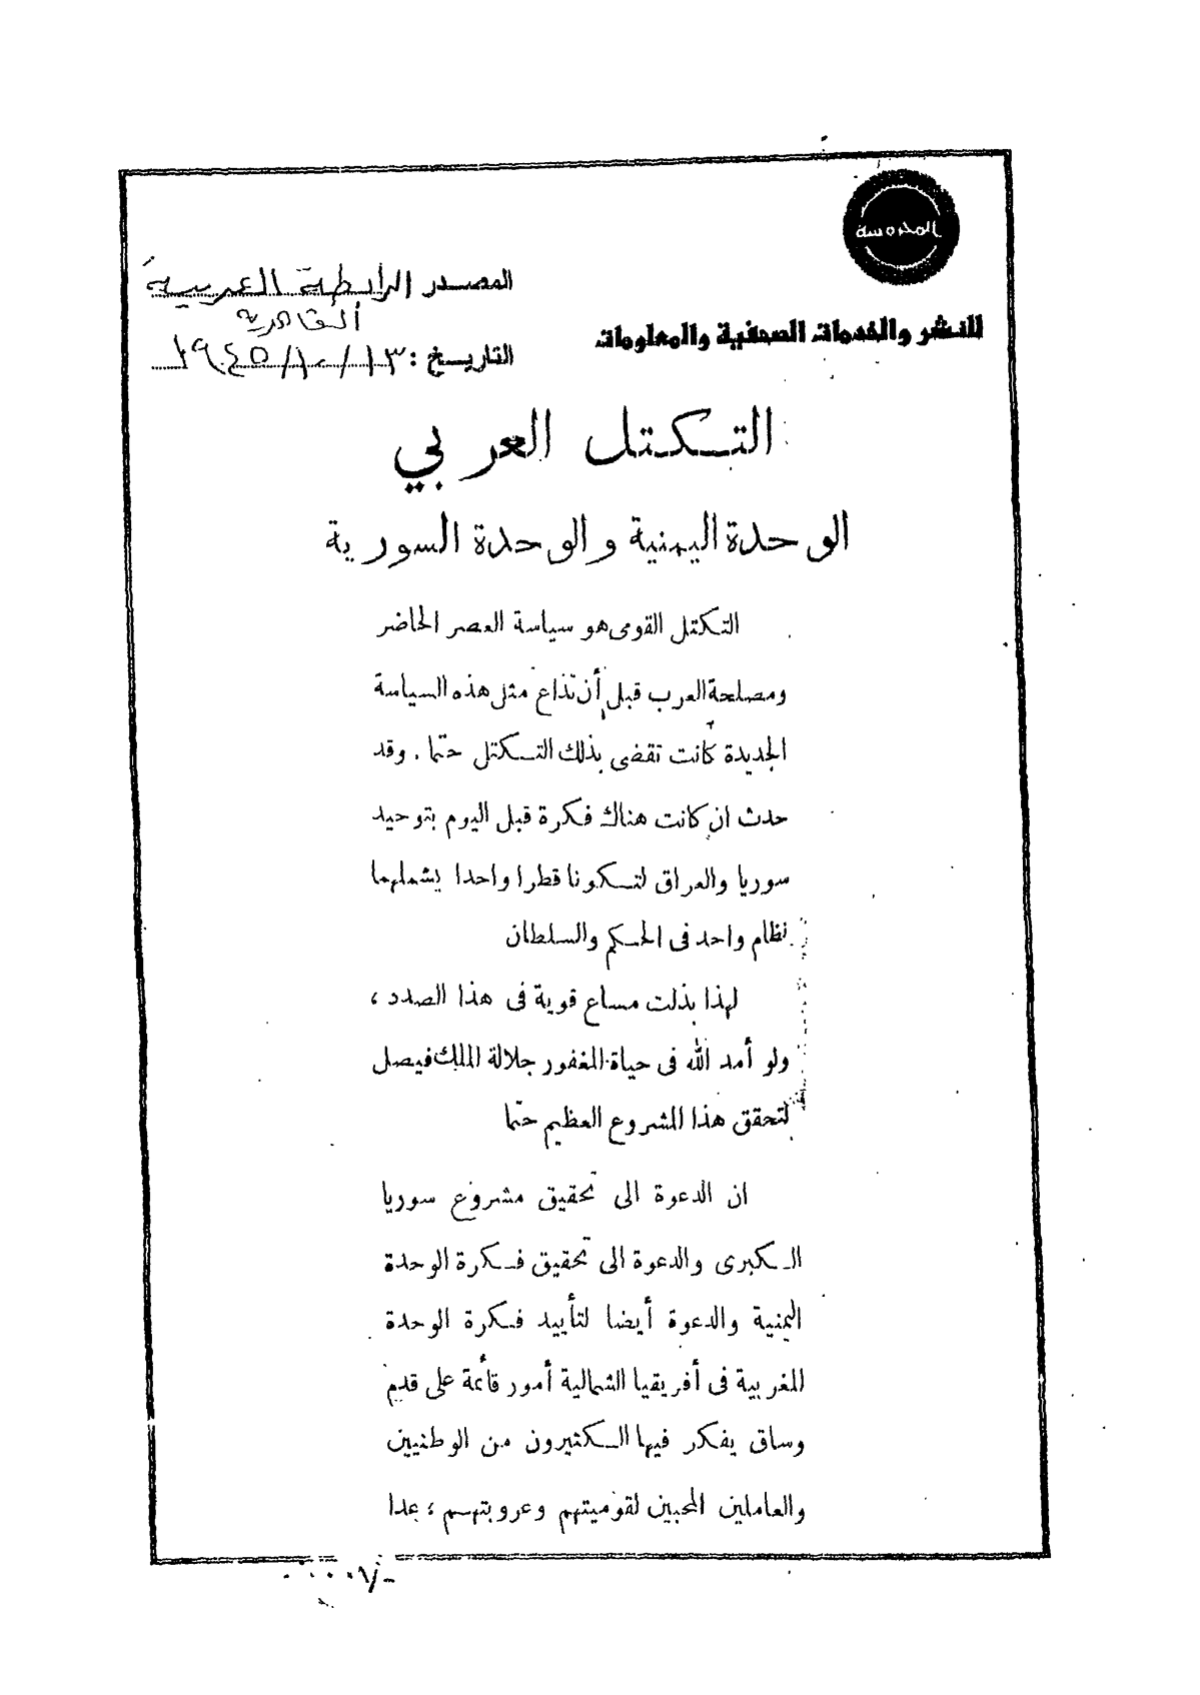 المحروسة
للنشر والخدمات الصحفية والمعلومات
المصدر الرابطة العربية
القاهرية
التاريخ : ١٣/١٠/١٩٤٥
التكتل العربي
الوحدة اليمنية والوحدة السورية
التكتل القومى هو سياسة العصر الحاضر
ومصلحة العرب قبل أن تذاع مثل هذه السياسة
الجديدة كانت تقضى بذلك التكتل حتما . وقد
حدث ان كانت هناك فكرة قبل اليوم بتوحيد
سوريا والعراق لتكونا قطرا واحدا يشملهما
نظام واحد فى الحكم والسلطان
لهذا بذلت مساع قوية فى هذا الصدد ،
ولو أمد الله فى حياة المغفور جلالة الملك فيصل
لتحقق هذا المشروع العظيم حتما
ان الدعوة الى تحقيق مشروع سوريا
الكبرى والدعوة الى تحقيق فكرة الوحدة
اليمنية والدعوة أيضا لتأييد فكرة الوحدة
المغربية فى أفريقيا الشمالية أمور قائمة على قدم
وساق يفكر فيها الكثيرون من الوطنيين
والعاملين المحبين لقوميتهم وعروبتهم ، عدا